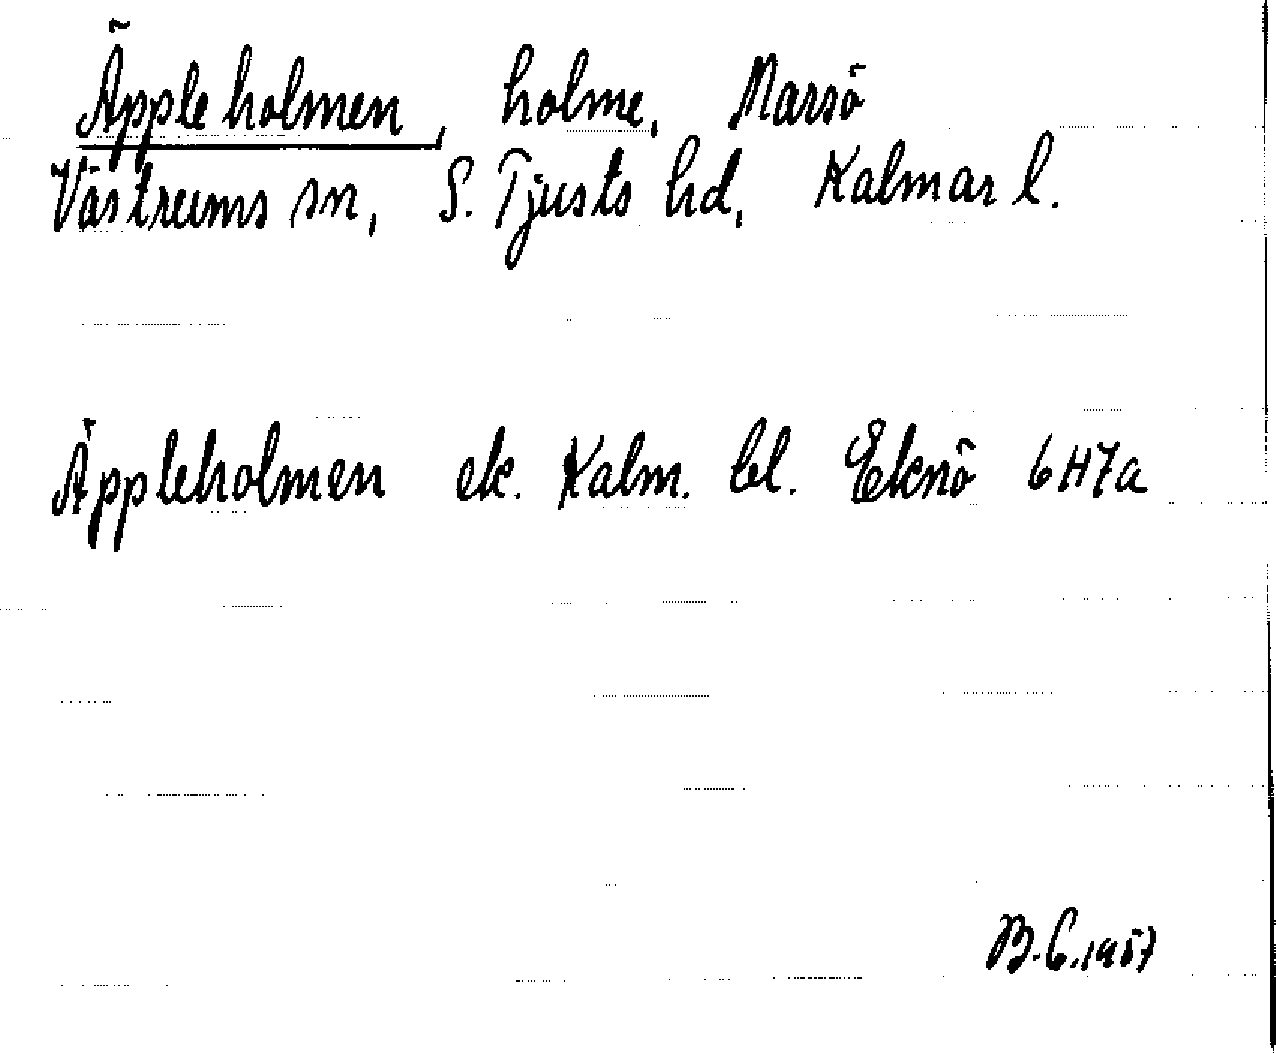 Äppleholmen, holme, Marsö
Västrums sn, S. Tjusts hd, Kalmar l.
Äppleholmen ek. Kalm. bl. Eknö 6H7a
B.G. 1957